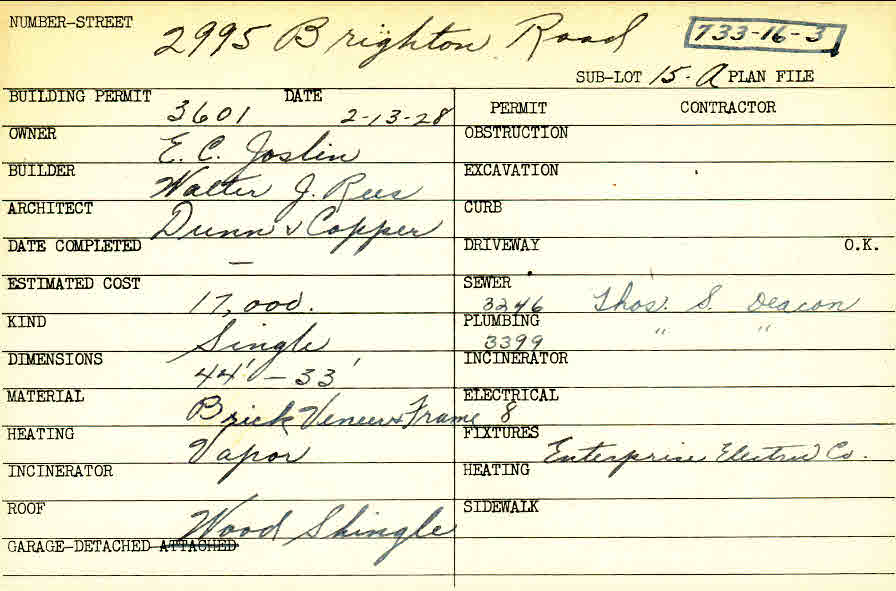 NUMBER-STREET 2995 Brighton Road 733-16-3
SUB-LOT 15-A PLAN FILE
BUILDING PERMIT 3601 DATE 2-13-28
PERMIT CONTRACTOR
OWNER E. C. Joslin
OBSTRUCTION
BUILDER Walter J. Rees
EXCAVATION
ARCHITECT Dunn & Copper
CURB
DATE COMPLETED —
DRIVEWAY O.K.
ESTIMATED COST 17,000.
SEWER 3246 Thos. S. Deacon
KIND Single
PLUMBING 3399 " "
DIMENSIONS 44' — 33'
INCINERATOR
MATERIAL Brick Veneer & Frame
ELECTRICAL 8
HEATING Vapor
FIXTURES Enterprise Electric Co.
INCINERATOR
HEATING
ROOF Wood Shingle
SIDEWALK
GARAGE-DETACHED ATTACHED